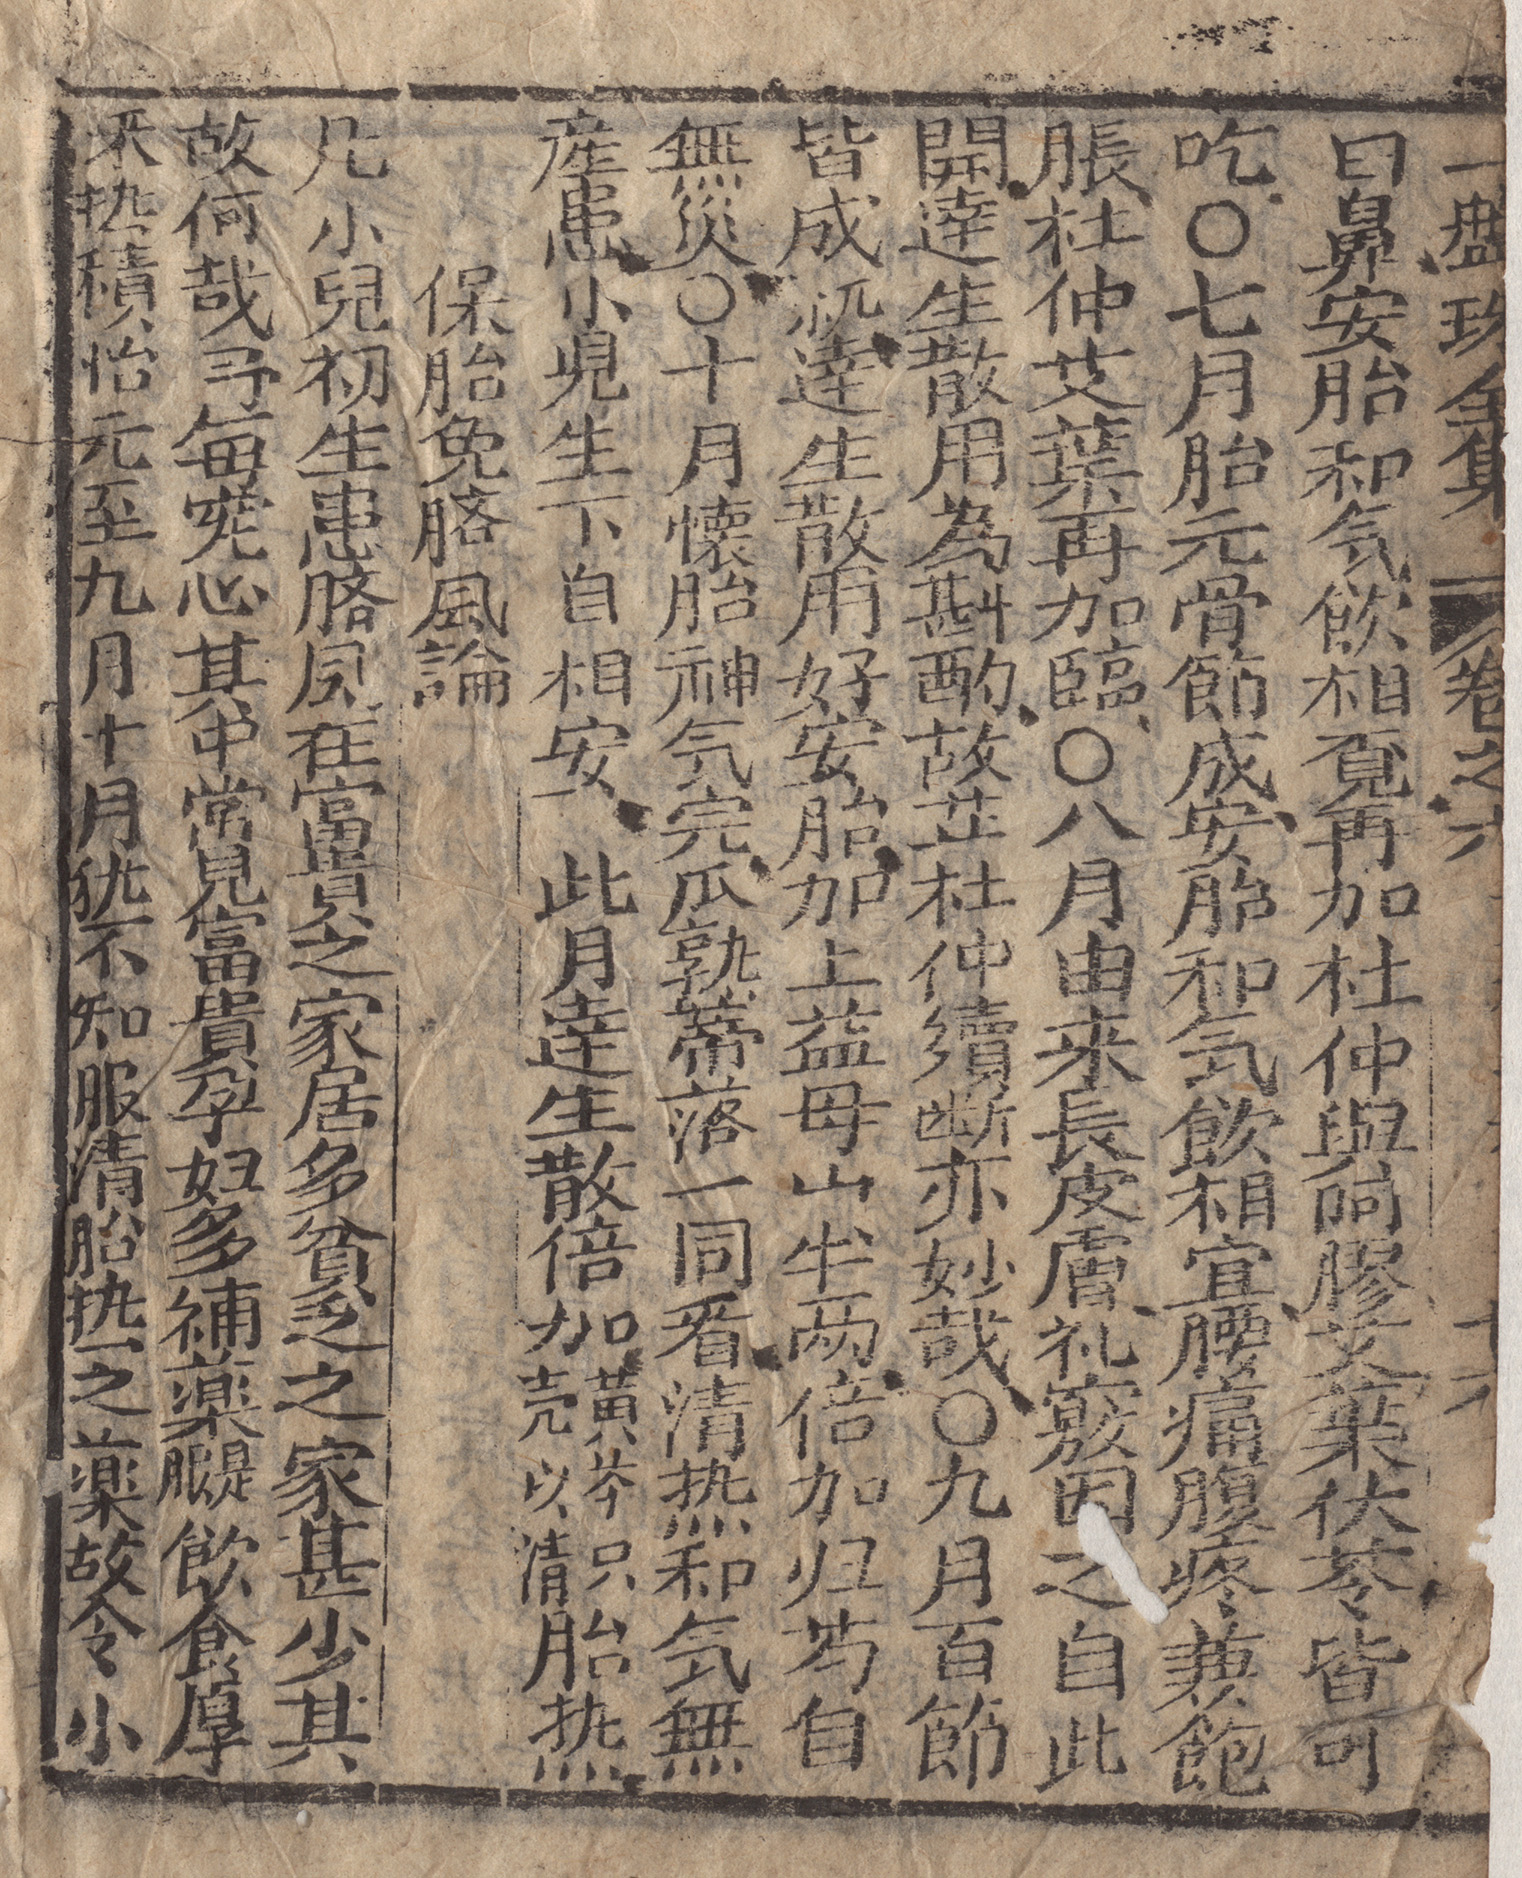 一盘珠全集 卷之六 十六
曰鼻安胎和気飲相覓再加杜仲與阿膠艾葉伏苓皆可
吃〇七月胎元骨節成安胎和気飲相宜腰痛腹疼兼飽
脹杜仲艾葉再加臨〇八月由来長皮膚礼竅因之自此
開達生散用為斟酌故芷杜仲續断亦妙哉〇九月百節
皆成就達生散用好安胎加上益母山半両倍加归芎自
無災〇十月懐胎神気完瓜孰蒂落一同看清热和気無
産患小児生下自相安 此月達生散倍加黄芩只壳以清胎热
保胎免脐風論
凡小兒初生患脐風在富貴之家居多貧乏之家甚少其
故何哉予每究心其中常見富貴孕妇多補薬腿飲食厚
釆热積怡元至九月十月犹不知服清胎热之薬故令小